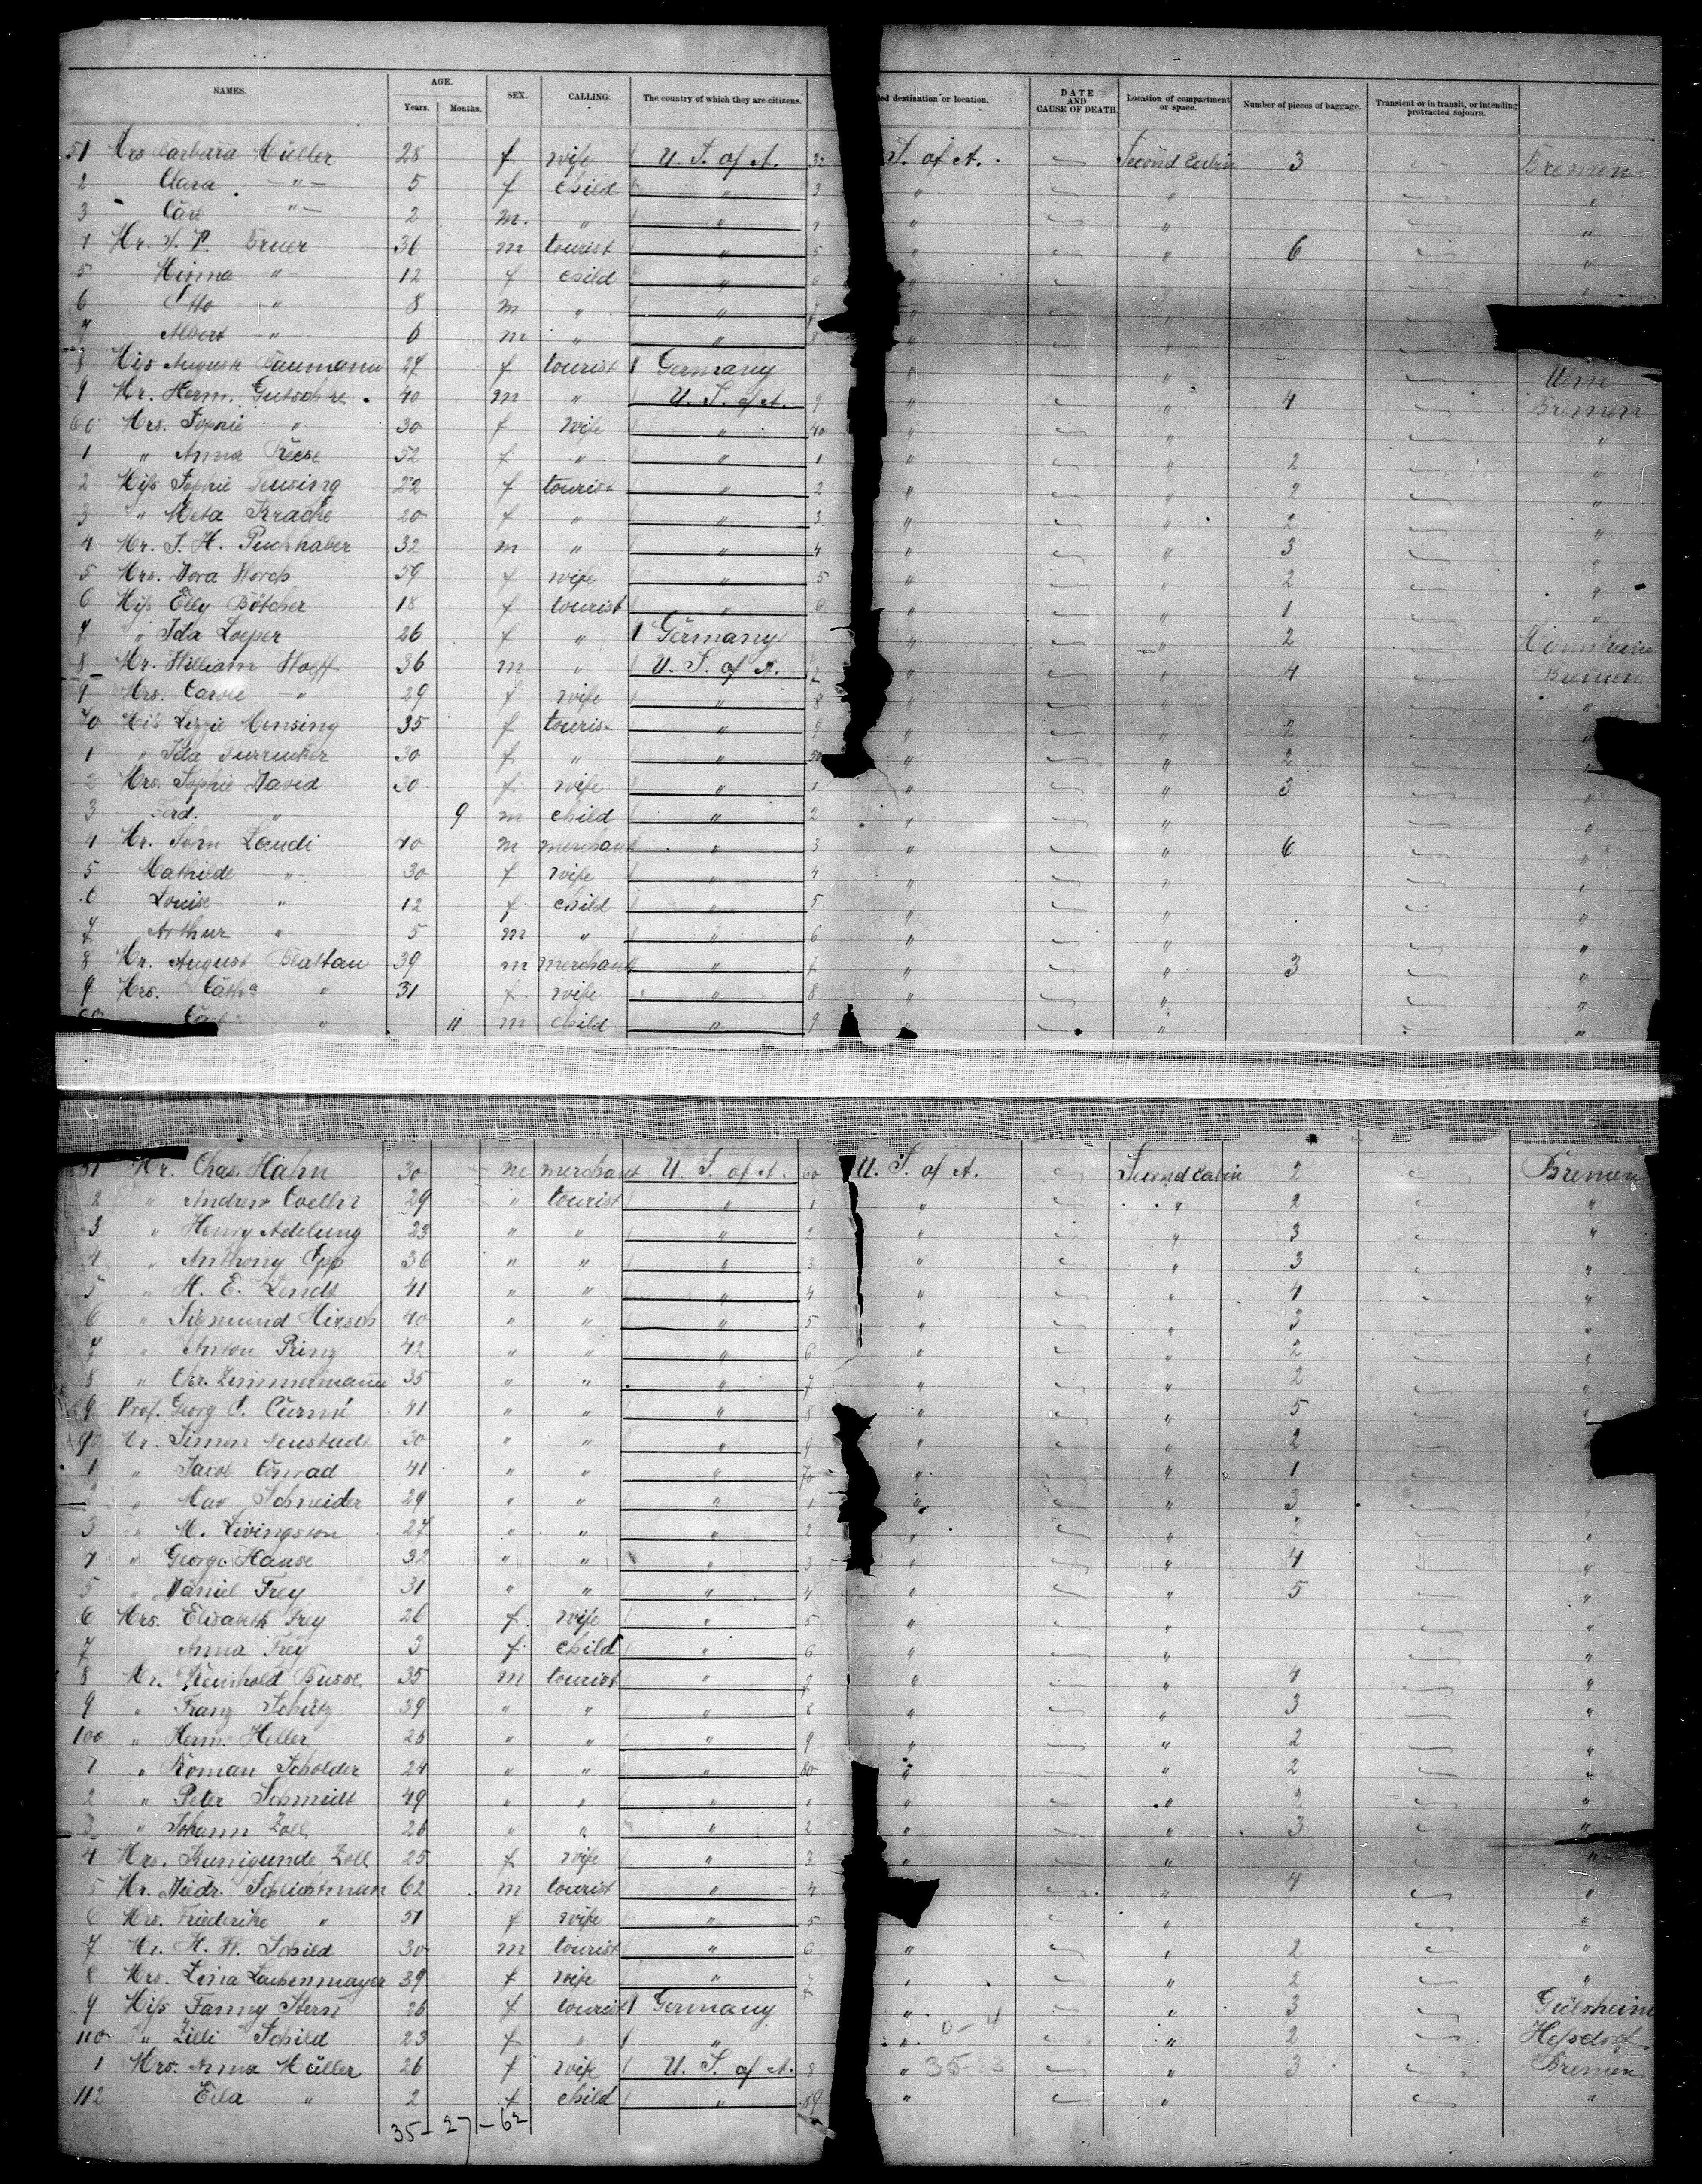 NAMES. AGE. Years. Months. SEX. CALLING. The country of which they are citizens. ed destination or location. DATE AND CAUSE OF DEATH. Location of compartment or space. Number of pieces of baggage. Transient or in transit, or intending protracted sojourn.
51 Mrs Barbara Müller 28 f wife U. S. of A. 32 S. of A. Second Cabin 3 Bremen
2 Clara -"- 5 f child " 3 " " "
3 Carl -"- 2 m. " " " " "
4 Mr. 36 m tourist " 5 " " 6 "
5 Minna " 12 f child " 6 " "
6 Otto " 8 m " " 7 " "
7 Albert " 6 m " " 8 " "
8 Miss August Baumann 27 f tourist 1 Germany " "
9 Mr. Herm. Gutsohre 40 m " U. S. of A. 9 " " 4 Bremen
60 Mrs. Sophie " 30 f wife " 40 " " "
1 " Anna Reese 52 f " " 1 " " 2 "
2 Miss Sophie 22 f tourist " 2 " " 2 "
3 " Meta Krache 20 f " " 3 " " 2 "
4 Mr. J. H. Puchhaber 32 m " " 4 " " 3 "
5 Mrs. Dora Horch 59 f wife " 5 " " 2 "
6 Miss Elly Bötcher 18 f tourist " 6 " " 1 "
7 " Ida Loeper 26 f " 1 Germany " " 2 Mannheim
8 Mr. William Wolff 36 m " U. S. of A. 7 " " 4 Bremen
9 Mrs. Carole -"- 29 f wife " 8 " " "
70 Miss Lizzie Mensing 35 f tourist " 9 " " 2 "
1 " Ida 30 f " " 50 " " 2 "
2 Mrs. Sophie David 30 f wife " 1 " " 3 "
3 Ferd. " 9 m child " 2 " " "
4 Mr. John Laudi 40 m merchant " 3 " " 6 "
5 Mathilde " 30 f wife " 4 " " "
6 Louise " 12 f child " 5 " " "
7 Arthur " 5 m " " 6 " " "
8 Mr. August Blattau 39 m merchant " 7 " " 3 "
9 Mrs. Catha " 31 f. wife " 8 " " "
" 11 m child " 9 " " "
81 Mr. Chas. Hahn 30 m merchant U. S. of A. 60 U. S. of A. Second Cabin 2 Bremen
2 " Andrew Coelln 29 " tourist " 1 " " 2 "
3 " Henry Adelung 23 " " " 2 " " 3 "
4 " Anthony Epp 36 " " " 3 " " 3 "
5 " H. E. Lendt 41 " " " 4 " " 4 "
6 " Sigmund Hirsch 40 " " " 5 " " 3 "
7 " Anton Prinz 42 " " " 6 " " 2 "
8 " Chr. Zimmermann 35 " " " 7 " " 2 "
9 Prof. Georg C. Curmé 41 " " " 8 " " 5 "
90 Mr. Simon Neustadt 30 " " " 9 " " 2 "
1 " Jacob Conrad 41 " " " 70 " " 1 "
2 " Max Schneider 29 " " " 1 " " 3 "
3 " M. Livingson 27 " " " 2 " " 2 "
4 " George Hause 32 " " " 3 " " 4 "
5 " Daniel Frey 31 " " " 4 " " 5 "
6 Mrs. Elisabeth Frey 26 f wife " 5 " " "
7 Anna Frey 3 f child " 6 " " "
8 Mr. Reinhold Busse 35 m tourist " 7 " " 4 "
9 " Franz Schütz 39 " " " 8 " " 3 "
100 " Herm. Heller 25 " " " 9 " " 2 "
1 " Roman Scholder 24 " " " 80 " " 2 "
2 " Peter Schmidt 49 " " " 1 " " 2 "
3 " Johann Zoll 26 " " " 2 " " 3 "
4 Mrs. Kunigunde Zoll 25 f wife " 3 " " "
5 Mr. Diedr. Schlichtman 62 m tourist " 4 " 4 "
6 Mrs. Friederike " 51 f wife " 5 " "
7 Mr. H. W. Schild 30 m tourist " 6 " " 2 "
8 Mrs. Lina Lachenmayer 39 f wife " 7 " " 2 "
9 Miss Fanny Stern 26 f tourist 1 Germany " " 3 Gülsheim
110 " Zilli Schild 23 f " 1 " " 0-4 " 2 Hessdorf
1 Mrs. Anna Müller 26 f wife 1 U. S. of A. 8 " 35-23 " 3 Bremen
112 Ella " 2 f child " 89 " " "
35-27-62